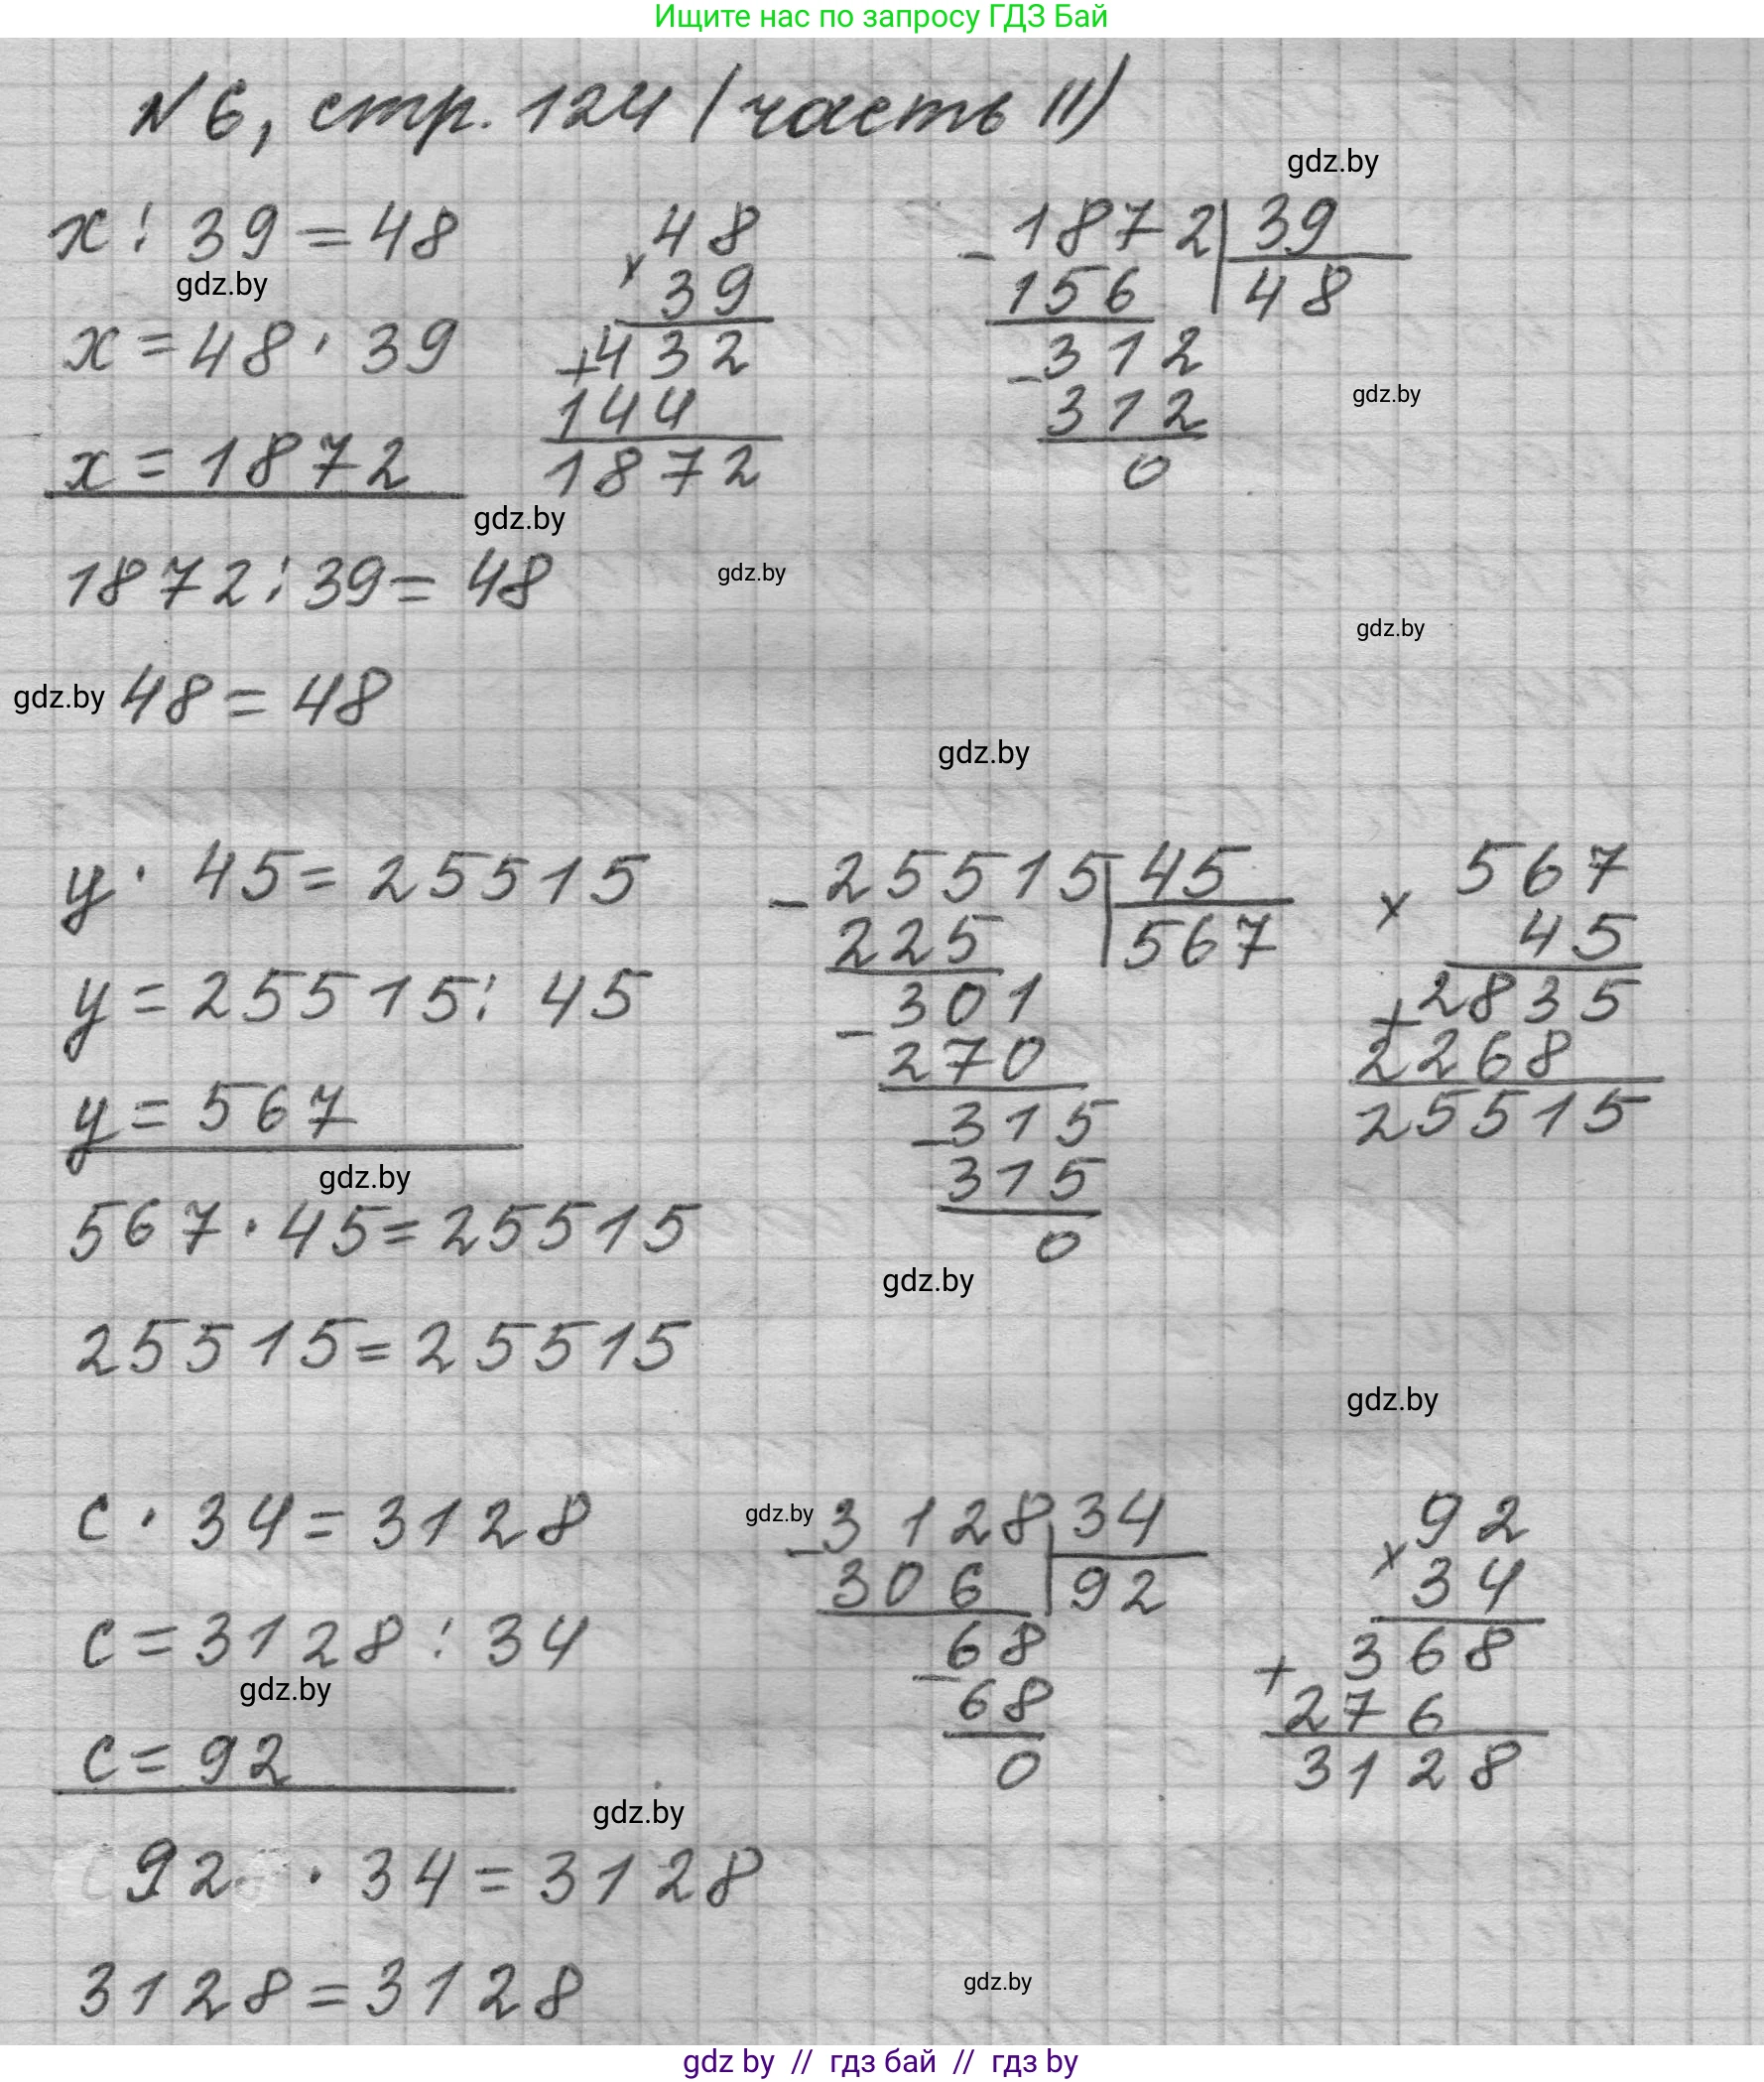 Ищите нас по запросу ГДЗ Бай
№ 6, стр. 124 (часть II)
gdz.by
x : 39 = 48
gdz.by
x = 48 · 39
x = 1872
gdz.by
1872 : 39 = 48
gdz.by 48 = 48
× 48
39
+ 432
144
1872
- 1872 | 39
156 | 48
- 312
312
0
gdz.by
gdz.by
gdz.by
gdz.by
y · 45 = 25515
y = 25515 : 45
y = 567
gdz.by
567 · 45 = 25515
25515 = 25515
- 25515 | 45
225 | 567
- 301
270
- 315
315
0
gdz.by
× 567
45
+ 2835
2268
25515
gdz.by
c · 34 = 3128
c = 3128 : 34
gdz.by
c = 92
gdz.by
92 · 34 = 3128
3128 = 3128
gdz.by
- 3128 | 34
306 | 92
- 68
68
0
× 92
34
+ 368
276
3128
gdz.by
gdz by // гдз бай // гдз by